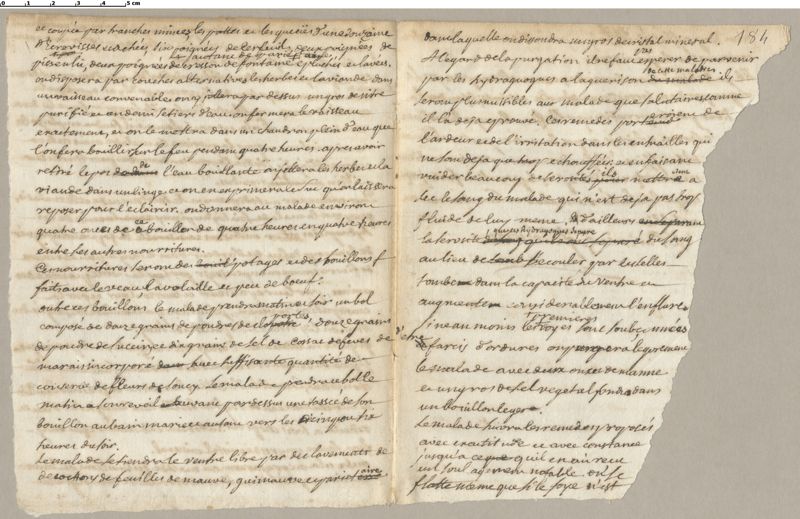 et coupée par tranches minces, les pattes et les queues d'une douzaine
d'ecrevisses ecachées, six poignées de cerfeuil, deux poignées de
pissenlit, deux poignées de cresson de fontaine epluchées et lavées.
on disposera par couches alternatives les herbes et la viande dans
un vaisseau convenable, on y jettera par dessus un gros de nitre
purifié et un demi setier d'eau, on fermera le vaisseau
exactement, et on le mettra dans un chaudron plein d'eau que
l'on fera bouillir sur le feu pendant quatre heures. apres avoir
retiré le pot de l'eau bouillante on jettera les herbes et la
viande dans un linge et on en exprimera le suc qu'on laissera
reposer pour l'eclaircir. on donnera au malade environ
quatre onces de ce bouillon de quatre heures en quatre heures
entre les autres nourritures.
Ces nourritures seront des potages et des bouillons
faits avec le veau, la volaille et peu de boeuf.
outre ces bouillons le malade prendra matin et soir un bol
composé de douze grains de poudre de cloportes, douze grains
de poudre de succin, et dix grains de sel de cosse de feves de
marais incorporé avec suffisante quantité de
conserve de fleurs de soucy. le malade prendra un bol le
matin a son reveil beuvant par dessus une tasse de son
bouillon au bain marie et autant vers les cinq ou six
heures du soir.
Le malade se tiendra le ventre libre par des lavements de
decoctions de feuilles de mauve, guimauve et parietaire
184
dans laquelle on dissoudra un gros de cristal mineral.
A l'egard de la purgation il ne faut esperer de parvenir
par les hydragogues a la guerison de cette maladie ils
seront plus nuisibles au malade que salutaires comme
il l'a deja eprouvé. Ces remedes portent de
l'ardeur et de l'irritation dans les entrailles qui
ne sont deja que trop echauffées et en faisant
vuider beaucoup de serosités ils mettent a
sec le sang du malade qui n'est deja pas trop
fluide de luy meme, d'ailleurs
la serosité du sang
au lieu de s'ecouler par les selles
tombe dans la capacité du ventre et
augmente considerablement l'enflure.
si neanmoins les premieres voyes sont soubçonnées
d'etre farcis d'ordures on purgera legerement
le malade avec deux onces de manne
et un gros de sel vegetal fondu dans
un bouillon leger.
Le malade suivra les remedes proposés
avec exactitude et avec constance
jusqu'a ce qu'il en ait receu
un soulagement notable. on se
flatte meme que si le foye n'est